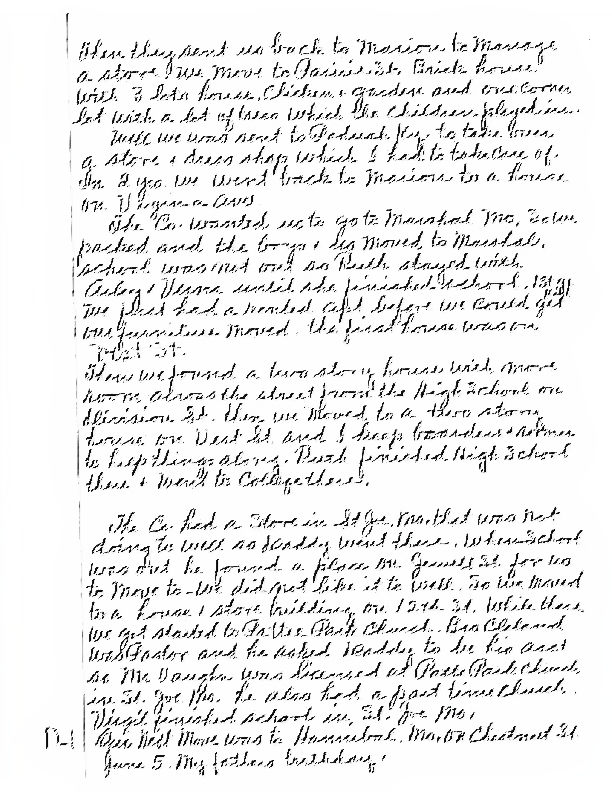 Then they sent us back to Marion to Manage
a store. We move to Parrie St. Brick house
with 3 lots house, Chicken & garden and one corner
lot with a lot of trees which the children played in.
Well we was sent to Paducah Ky. to take over
a store & dress shop which I had to take care of.
In 2 yrs we went back to Marion to a house
on Virginia Ave
The Co. wanted us to go to Marshal Mo, So we
packed and the boys & us Moved to Marshal.
school was not out so Ruth stayed with
& Verna until she finished school.
We first had a rented apt before we could get
our furniture moved. the first house was on
West St.
Then we found a two story house with more
room across the street from the High School on
Division St. then we moved to a two story
house on West St and I keep boarders &
to keep things along. Ruth finished High School
there & went to College there.
The Co. had a Store in St Joe, Mo. that was not
doing to well so Daddy went there. When School
was out he found a place on St. for us
to Move to - we did not like it to well. So we moved
to a house & store building on 12nd St. While there
we got started to Pattee Park Church. Bro Cleland
was Pastor and he asked Daddy to be his asst
so Mr Vaughn was licensed at Patte Park Church
in St. Joe Mo. he also had a part time Church.
Virgil finished school in St. Joe Mo.
Our Next Move was to Hannibal, Mo. on Chestnut St
June 5. My fathers birthday.